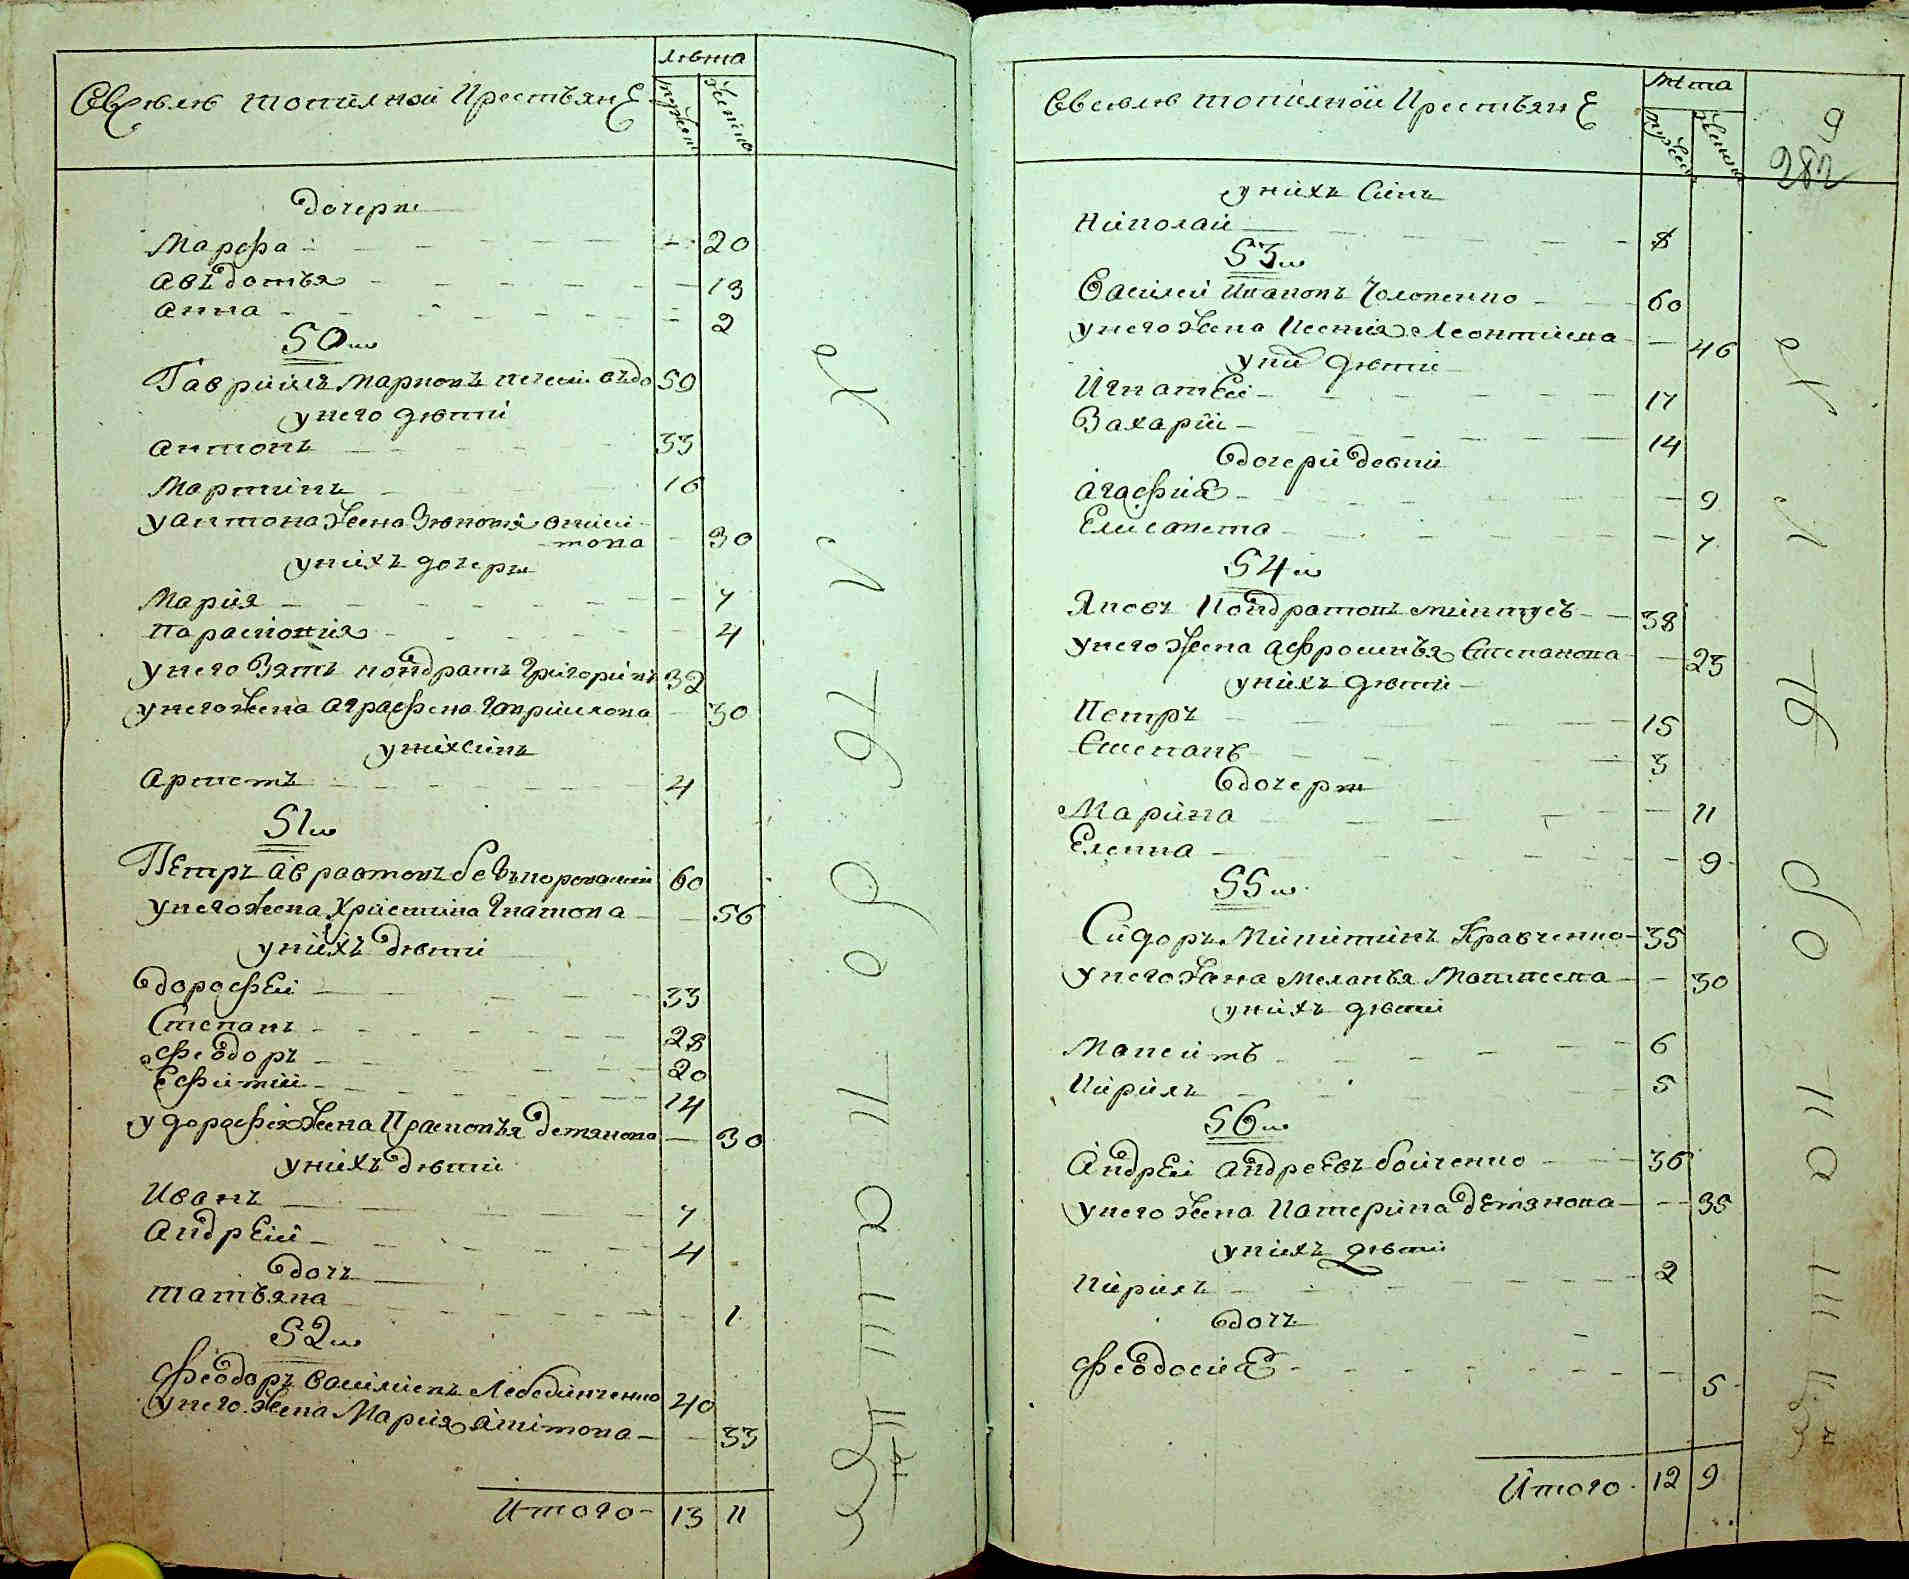 Всѣлѣ топилной Крестьянѣ
лѣта
мужеск
женско
дочери
Марфа 20
Авъдотья 13
Анна 2
50ш
Гавриилъ Марковъ 50
у него дѣти
Антонъ 33
Мартинъ 16
у Антона жена
30
у нихъ дочери
Мария 7
Парасковия 4
у него Зять Кондратъ Григорїинъ 32
у него жена Аграфена Гавриилова 30
у них синъ
Артемъ 4
51ш
Петръ 60
у него жена Христина Гнатова 56
у нихъ дѣти
Дорофей 33
Степанъ 28
Феодоръ 20
Ефимий 14
у дорофея жена Прасковъя Демянова 30
у нихъ дѣти
Иванъ 7
Андрей 4
дочъ
Татьяна 1
52ш
Феодоръ Василиевъ Лебединченко 40
у него жена Мария 33
Итого 13 11
Всѣлѣ топилной Крестьянѣ
лѣта
мужеск
женско
9
282
у нихъ Синъ
Николай 8
53ш
Василей Ивановъ Головенко 60
у него жена Ксения Леонтиева 46
у них дѣти
Игнатей 17
Захарий 14
дочери девки
Агафия 9
Елисавета 7
54ш
Яковъ Кондратовъ 38
у него жена Афросинъя Степанова 23
у нихъ дѣти
Петръ 15
Степанъ 3
дочери
Марина 11
Еленна 9
55ш
Сидоръ Никитинъ Кравченко 35
у него жена Меланъя Моисеева 30
у нихъ дѣти
Моисей 6
Кирилъ 5
56ш
Андрей Андреевъ Бойченко 36
у него жена Катерина Демянова 35
у нихъ дѣти
Кирилъ 2
дочъ
Феодосия 5
Итого 12 9